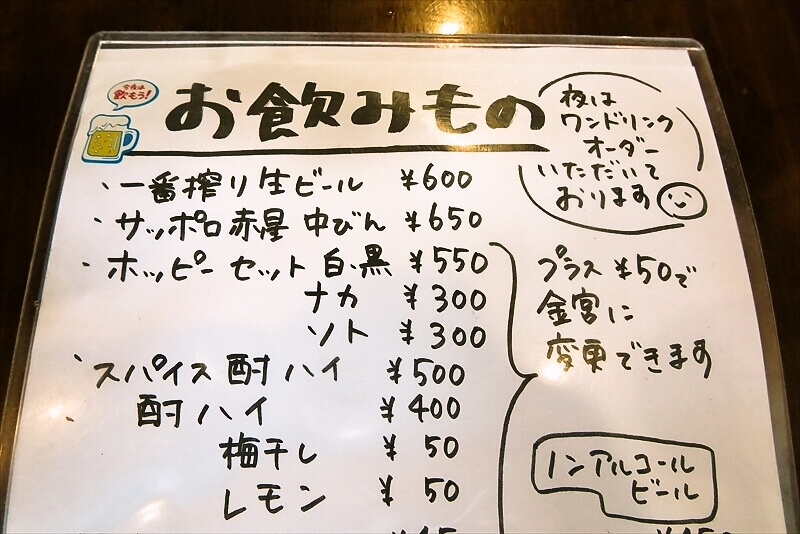 今夜は
飲もう!
お飲みもの
夜は
ワンドリンク
オーダー
いただいて
おります
・一番搾り生ビール ¥600
・サッポロ赤星 中びん ¥650
・ホッピーセット 白・黒 ¥550
ナカ ¥300
ソト ¥300
・スパイス酎ハイ ¥500
酎ハイ ¥400
梅干し ¥50
レモン ¥50
プラス¥50で
金宮に
変更できます
ノンアルコール
ビール